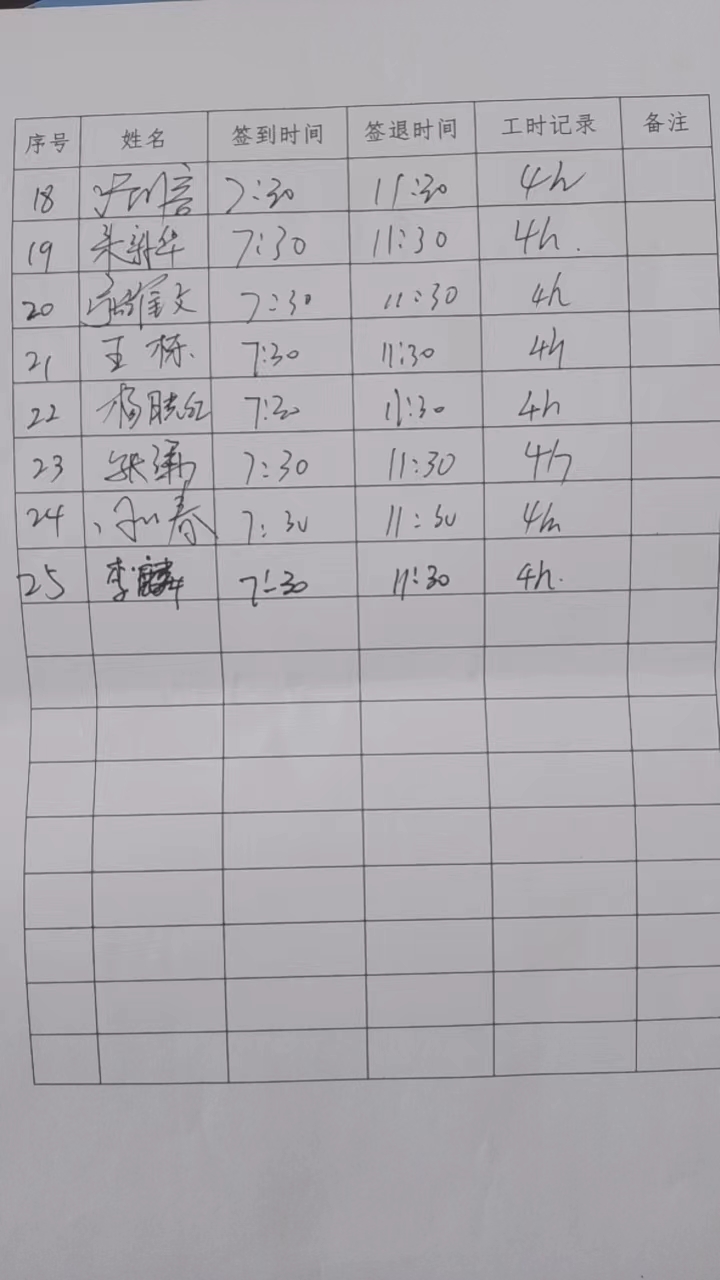 序号 姓名 签到时间 签退时间 工时记录 备注
18 7:30 11:30 4h
19 朱新华 7:30 11:30 4h.
20 7:30 11:30 4h
21 王栋 7:30 11:30 4h
22 杨晓红 7:30 11:30 4h
23 7:30 11:30 4h
24 春 7:30 11:30 4h
25 李麟 7:30 11:30 4h.